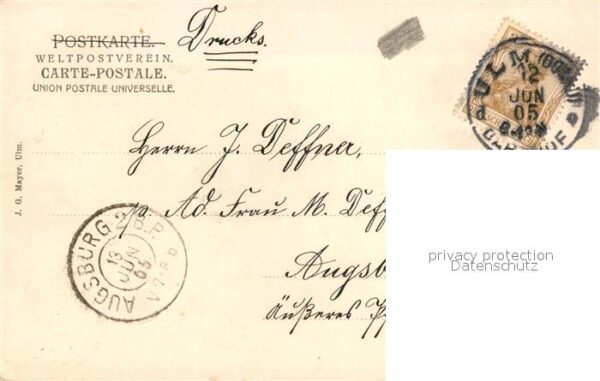 POSTKARTE.
Drucks.
WELTPOSTVEREIN.
CARTE-POSTALE.
UNION POSTALE UNIVERSELLE.
ULM (DONAU)
12
JUN
05
BAHNHOF
J. G. Mayer, Ulm.
Herrn J. Deffner,
Ad. Frau M. Deff
Augsb
Äußeres
privacy protection
Datenschutz
AUGSBURG 2 B.P.
13
JUN
05